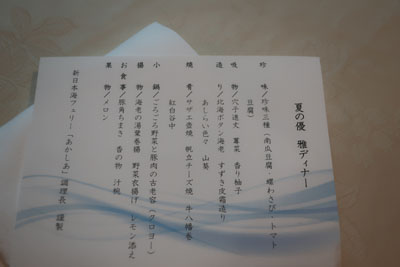 夏の優 雅ディナー
珍 味/珍味三種(南瓜豆腐・螺わさび・トマト
豆腐)
吸 物/穴子進丈 蓴菜 香り柚子
造 り/北海ボタン海老 すずき皮霜造り
あしらい色々 山葵
焼 肴/サザエ壺焼 帆立チーズ焼 牛八幡巻
紅白谷中
小 鍋/ごろごろ野菜と豚肉の古老容(クロヨー)
揚 物/海老の湯葉巻揚 野菜衣揚げ レモン添え
お食事/豚角ちまき 香の物 汁椀
果 物/メロン
新日本海フェリー「あかしあ」調理長 謹製